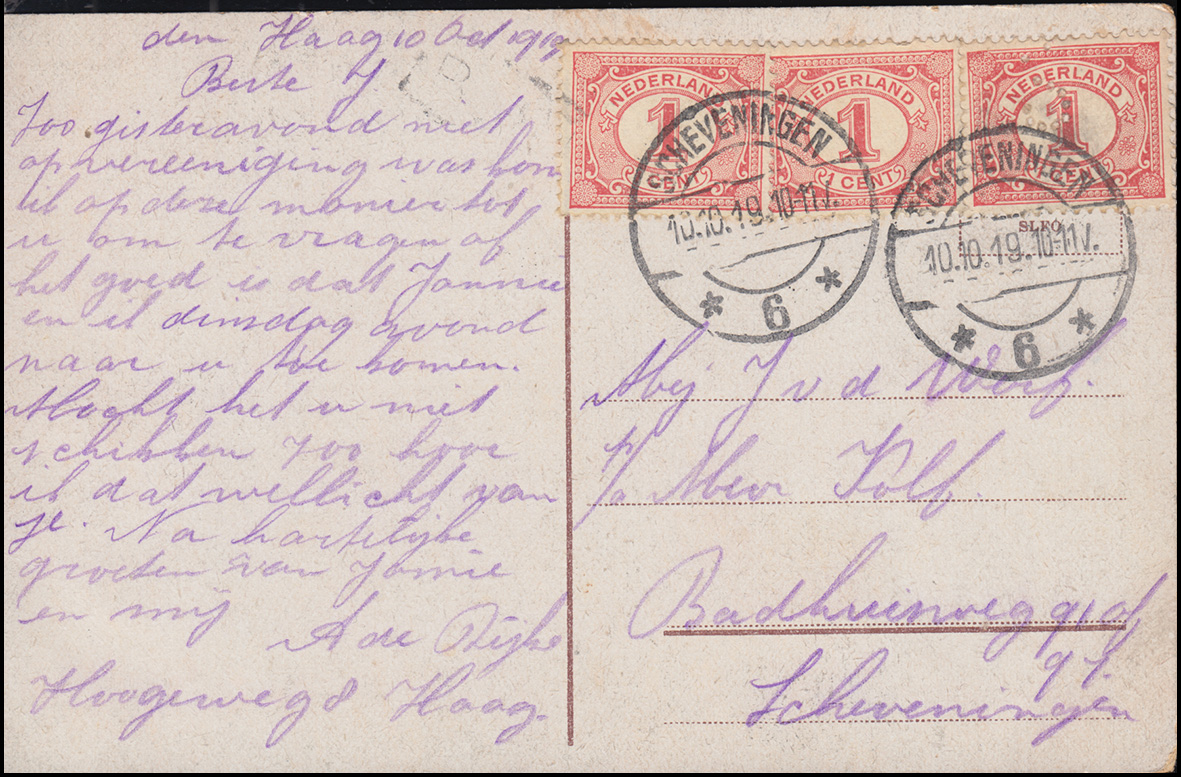 den Haag 10 Oct 1919
Beste J
Zoo gisteravond niet
op vereeniging was kom
ik op deze manier tot
u om te vragen of
het goed is dat Jannie
en ik dinsdag avond
naar u toe komen.
Mocht het u niet
schikken zoo hoor
ik dat wellicht van
je. Na hartelijke
groeten van Jannie
en mij
A de Rijke
Hoogeweg 8 Haag.
NEDERLAND
1
CENT
NEDERLAND
1
1 CENT
NEDERLAND
1
SCHEVENINGEN
10.10.19.10-11V.
* 6 *
SCHEVENINGEN
10.10.19.10-11V.
* 6 *
SLFO
Mej J v d Werf.
p/a Mevr Kolf.
Badhuisweg 91 of
97.
Scheveningen